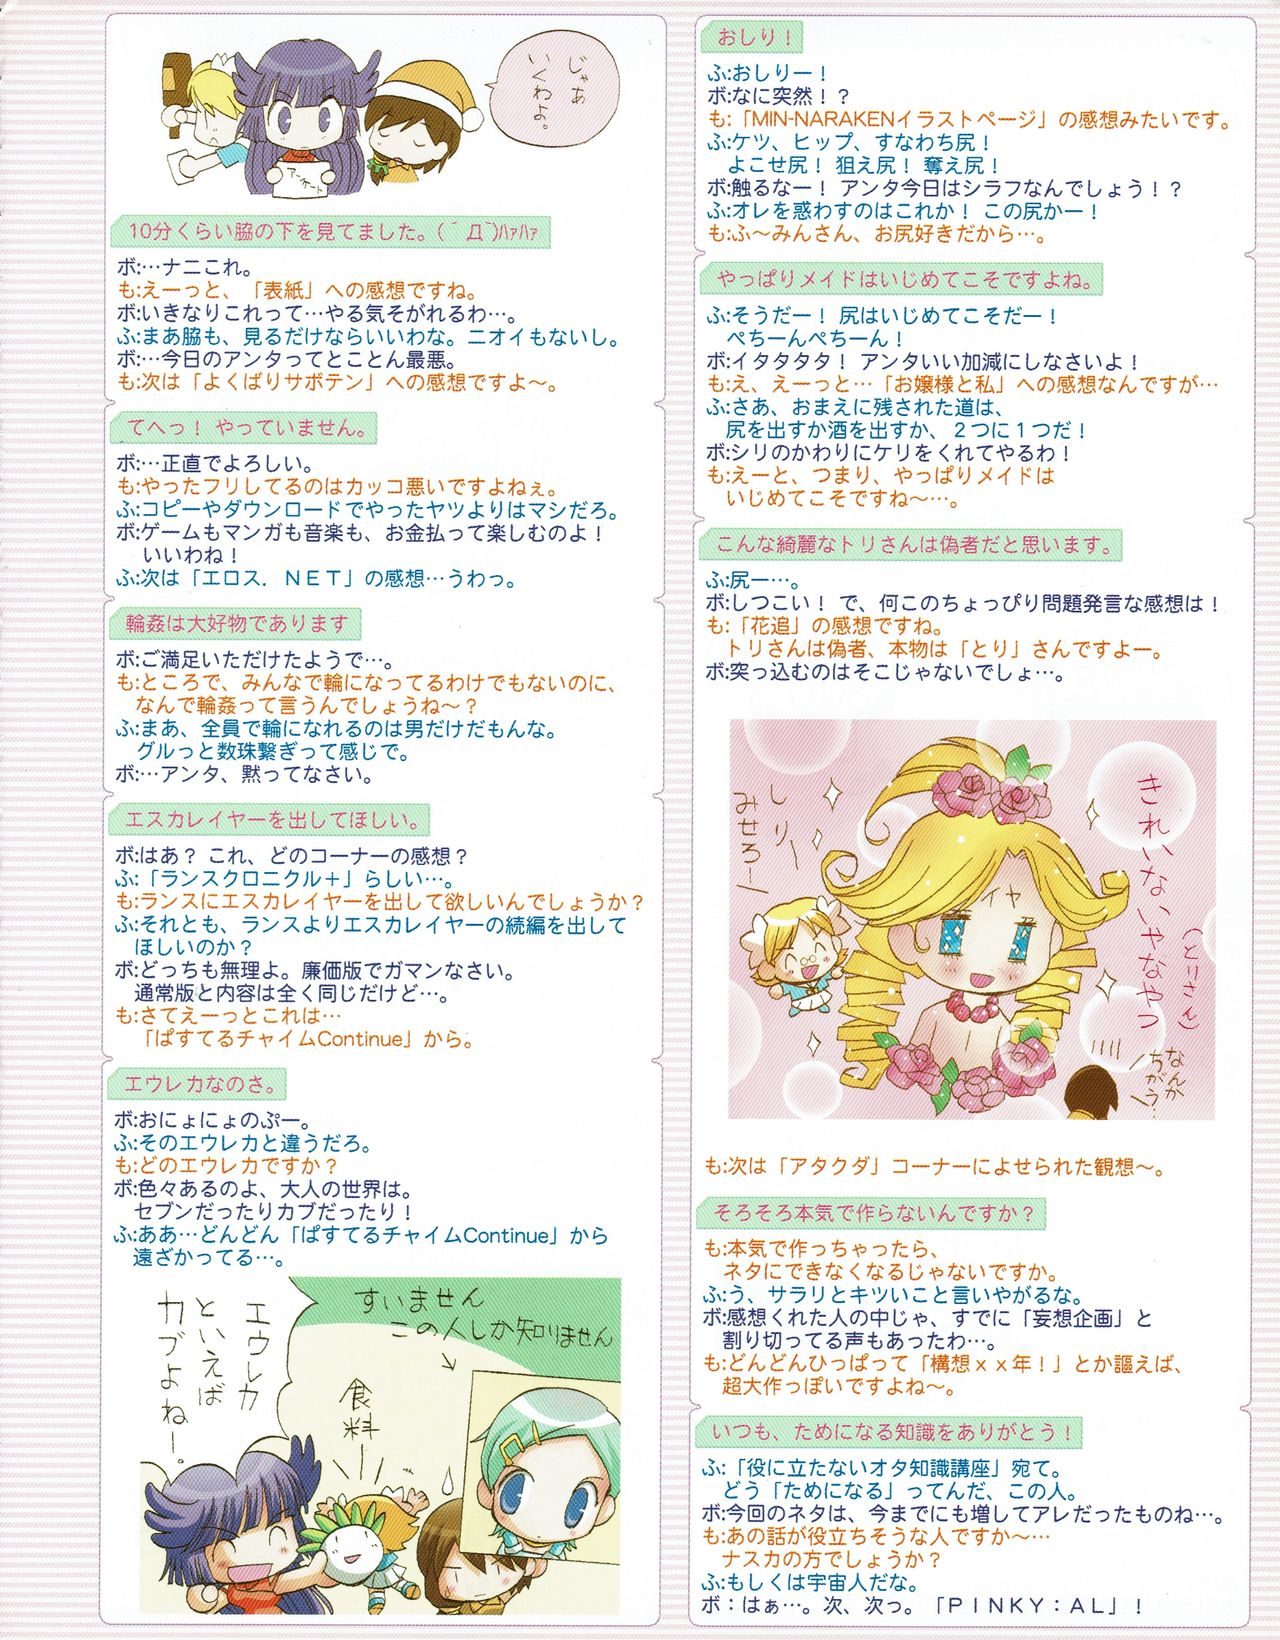 じゃあ
いくわよ。
アンケート
10分くらい脇の下を見てました。(´Д`)ﾊｧﾊｧ
ボ:…ナニこれ。
も:えーっと、「表紙」への感想ですね。
ボ:いきなりこれって…やる気そがれるわ…。
ふ:まあ脇も、見るだけならいいわな。ニオイもないし。
ボ:…今日のアンタってとことん最悪。
も:次は「よくばりサボテン」への感想ですよ〜。
てへっ！ やっていません。
ボ:…正直でよろしい。
も:やったフリしてるのはカッコ悪いですよねぇ。
ふ:コピーやダウンロードでやったヤツよりはマシだろ。
ボ:ゲームもマンガも音楽も、お金払って楽しむのよ！
いいわね！
ふ:次は「エロス．ＮＥＴ」の感想…うわっ。
輪姦は大好物であります
ボ:ご満足いただけたようで…。
も:ところで、みんなで輪になってるわけでもないのに、
なんで輪姦って言うんでしょうね〜？
ふ:まあ、全員で輪になれるのは男だけだもんな。
グルっと数珠繋ぎって感じで。
ボ:…アンタ、黙ってなさい。
エスカレイヤーを出してほしい。
ボ:はあ？ これ、どのコーナーの感想？
ふ:「ランスクロニクル＋」らしい…。
も:ランスにエスカレイヤーを出して欲しいんでしょうか？
ふ:それとも、ランスよりエスカレイヤーの続編を出して
ほしいのか？
ボ:どっちも無理よ。廉価版でガマンなさい。
通常版と内容は全く同じだけど…。
も:さてえーっとこれは…
「ぱすてるチャイムContinue」から。
エウレカなのさ。
ボ:おにょにょのぷー。
ふ:そのエウレカと違うだろ。
も:どのエウレカですか？
ボ:色々あるのよ、大人の世界は。
セブンだったりカブだったり！
ふ:ああ…どんどん「ぱすてるチャイムContinue」から
遠ざかってる…。
エウレカ
といえば
カブよね！
すいません
この人しか知りません
食料ー
おしり！
ふ:おしりー！
ボ:なに突然！？
も:「MIN-NARAKENイラストページ」の感想みたいです。
ふ:ケツ、ヒップ、すなわち尻！
よこせ尻！ 狙え尻！ 奪え尻！
ボ:触るなー！ アンタ今日はシラフなんでしょう！？
ふ:オレを惑わすのはこれか！ この尻かー！
も:ふ〜みんさん、お尻好きだから…。
やっぱりメイドはいじめてこそですよね。
ふ:そうだー！ 尻はいじめてこそだー！
ぺちーんぺちーん！
ボ:イタタタタ！ アンタいい加減にしなさいよ！
も:え、えーっと…「お嬢様と私」への感想なんですが…
ふ:さあ、おまえに残された道は、
尻を出すか酒を出すか、２つに１つだ！
ボ:シリのかわりにケリをくれてやるわ！
も:えーと、つまり、やっぱりメイドは
いじめてこそですね〜…。
こんな綺麗なトリさんは偽者だと思います。
ふ:尻ー…。
ボ:しつこい！ で、何このちょっぴり問題発言な感想は！
も:「花追」の感想ですね。
トリさんは偽者、本物は「とり」さんですよー。
ボ:突っ込むのはそこじゃないでしょ…。
きれいないやなやつ
(とりさん)
しりー
みせろー
イヤ
なんか
ちがう…
も:次は「アタクダ」コーナーによせられた観想〜。
そろそろ本気で作らないんですか？
も:本気で作っちゃったら、
ネタにできなくなるじゃないですか。
ふ:う、サラリとキツいこと言いやがるな。
ボ:感想くれた人の中じゃ、すでに「妄想企画」と
割り切ってる声もあったわ…。
も:どんどんひっぱって「構想ｘｘ年！」とか謳えば、
超大作っぽいですよね〜。
いつも、ためになる知識をありがとう！
ふ:「役に立たないオタ知識講座」宛て。
どう「ためになる」ってんだ、この人。
ボ:今回のネタは、今までにも増してアレだったものね…。
も:あの話が役立ちそうな人ですか〜…
ナスカの方でしょうか？
ふ:もしくは宇宙人だな。
ボ：はぁ…。次、次っ。「ＰＩＮＫＹ：ＡＬ」！